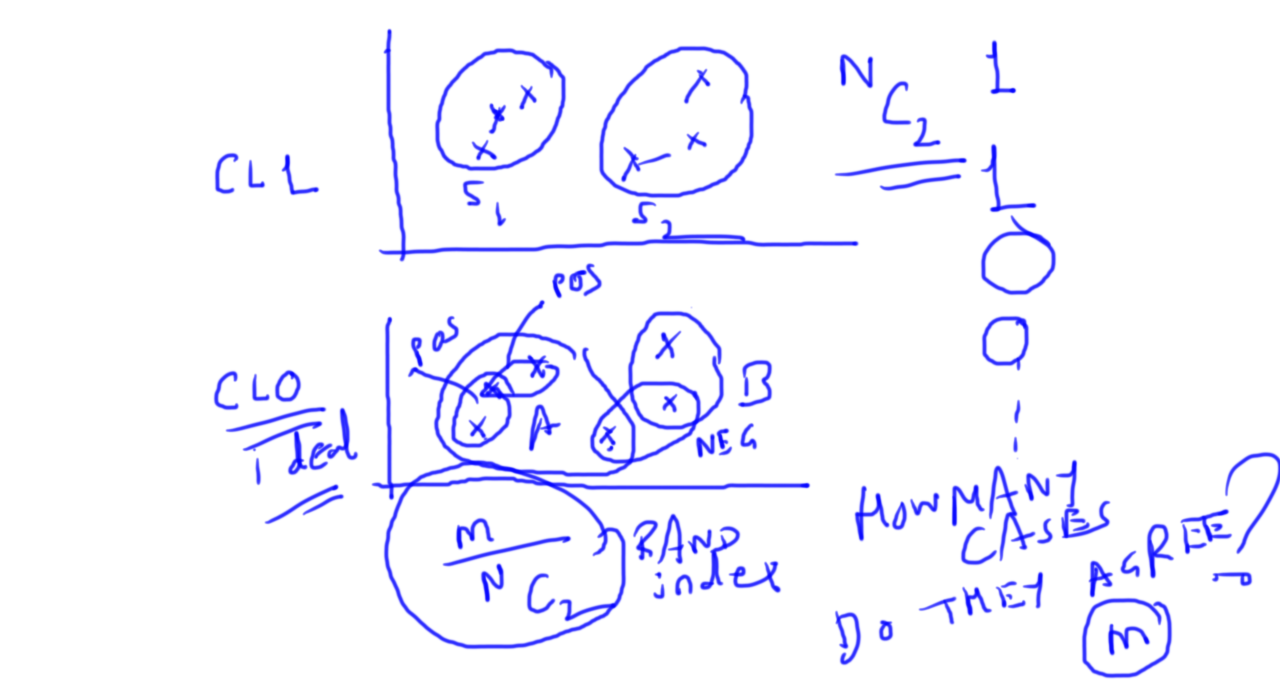 CL1
S1
S2
NC2
1
1
0
0
CL0
ideal
POS
POS
A
B
NEG
m
NC2
RAND
index
HOW MANY
CASES
DO THEY AGREE?
m